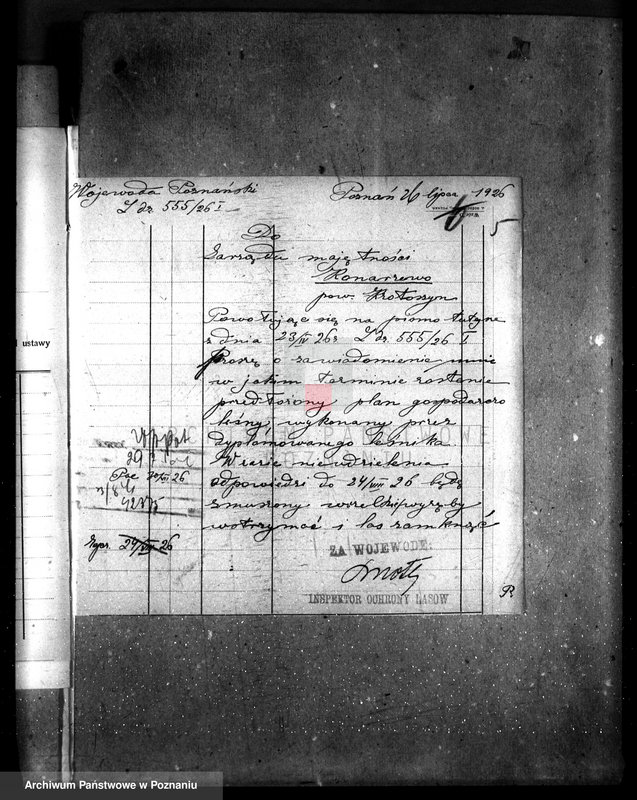 Wojewoda Poznański
L dz 555/26 I
Poznań 26 lipca 1926
5
Do
Zarządu majętności
Konarzewo
pow. Krotoszyn
Powołując się na pismo tutejsze
z dnia 23/IV 26 r L dz 555/26 I
proszę o zawiadomienie mnie
w jakim terminie zostanie
przedłożony plan gospodarczo
leśny, wykonany przez
dyplomowanego leśnika
W razie nieudzielenia
odpowiedzi do 24/VIII 26 będę
zmuszony wszelkie wyręby
wstrzymać i las zamknąć
ZA WOJEWODĘ:
INSPEKTOR OCHRONY LASÓW
P.
24/VIII 26
ustawy
Archiwum Państwowe w Poznaniu